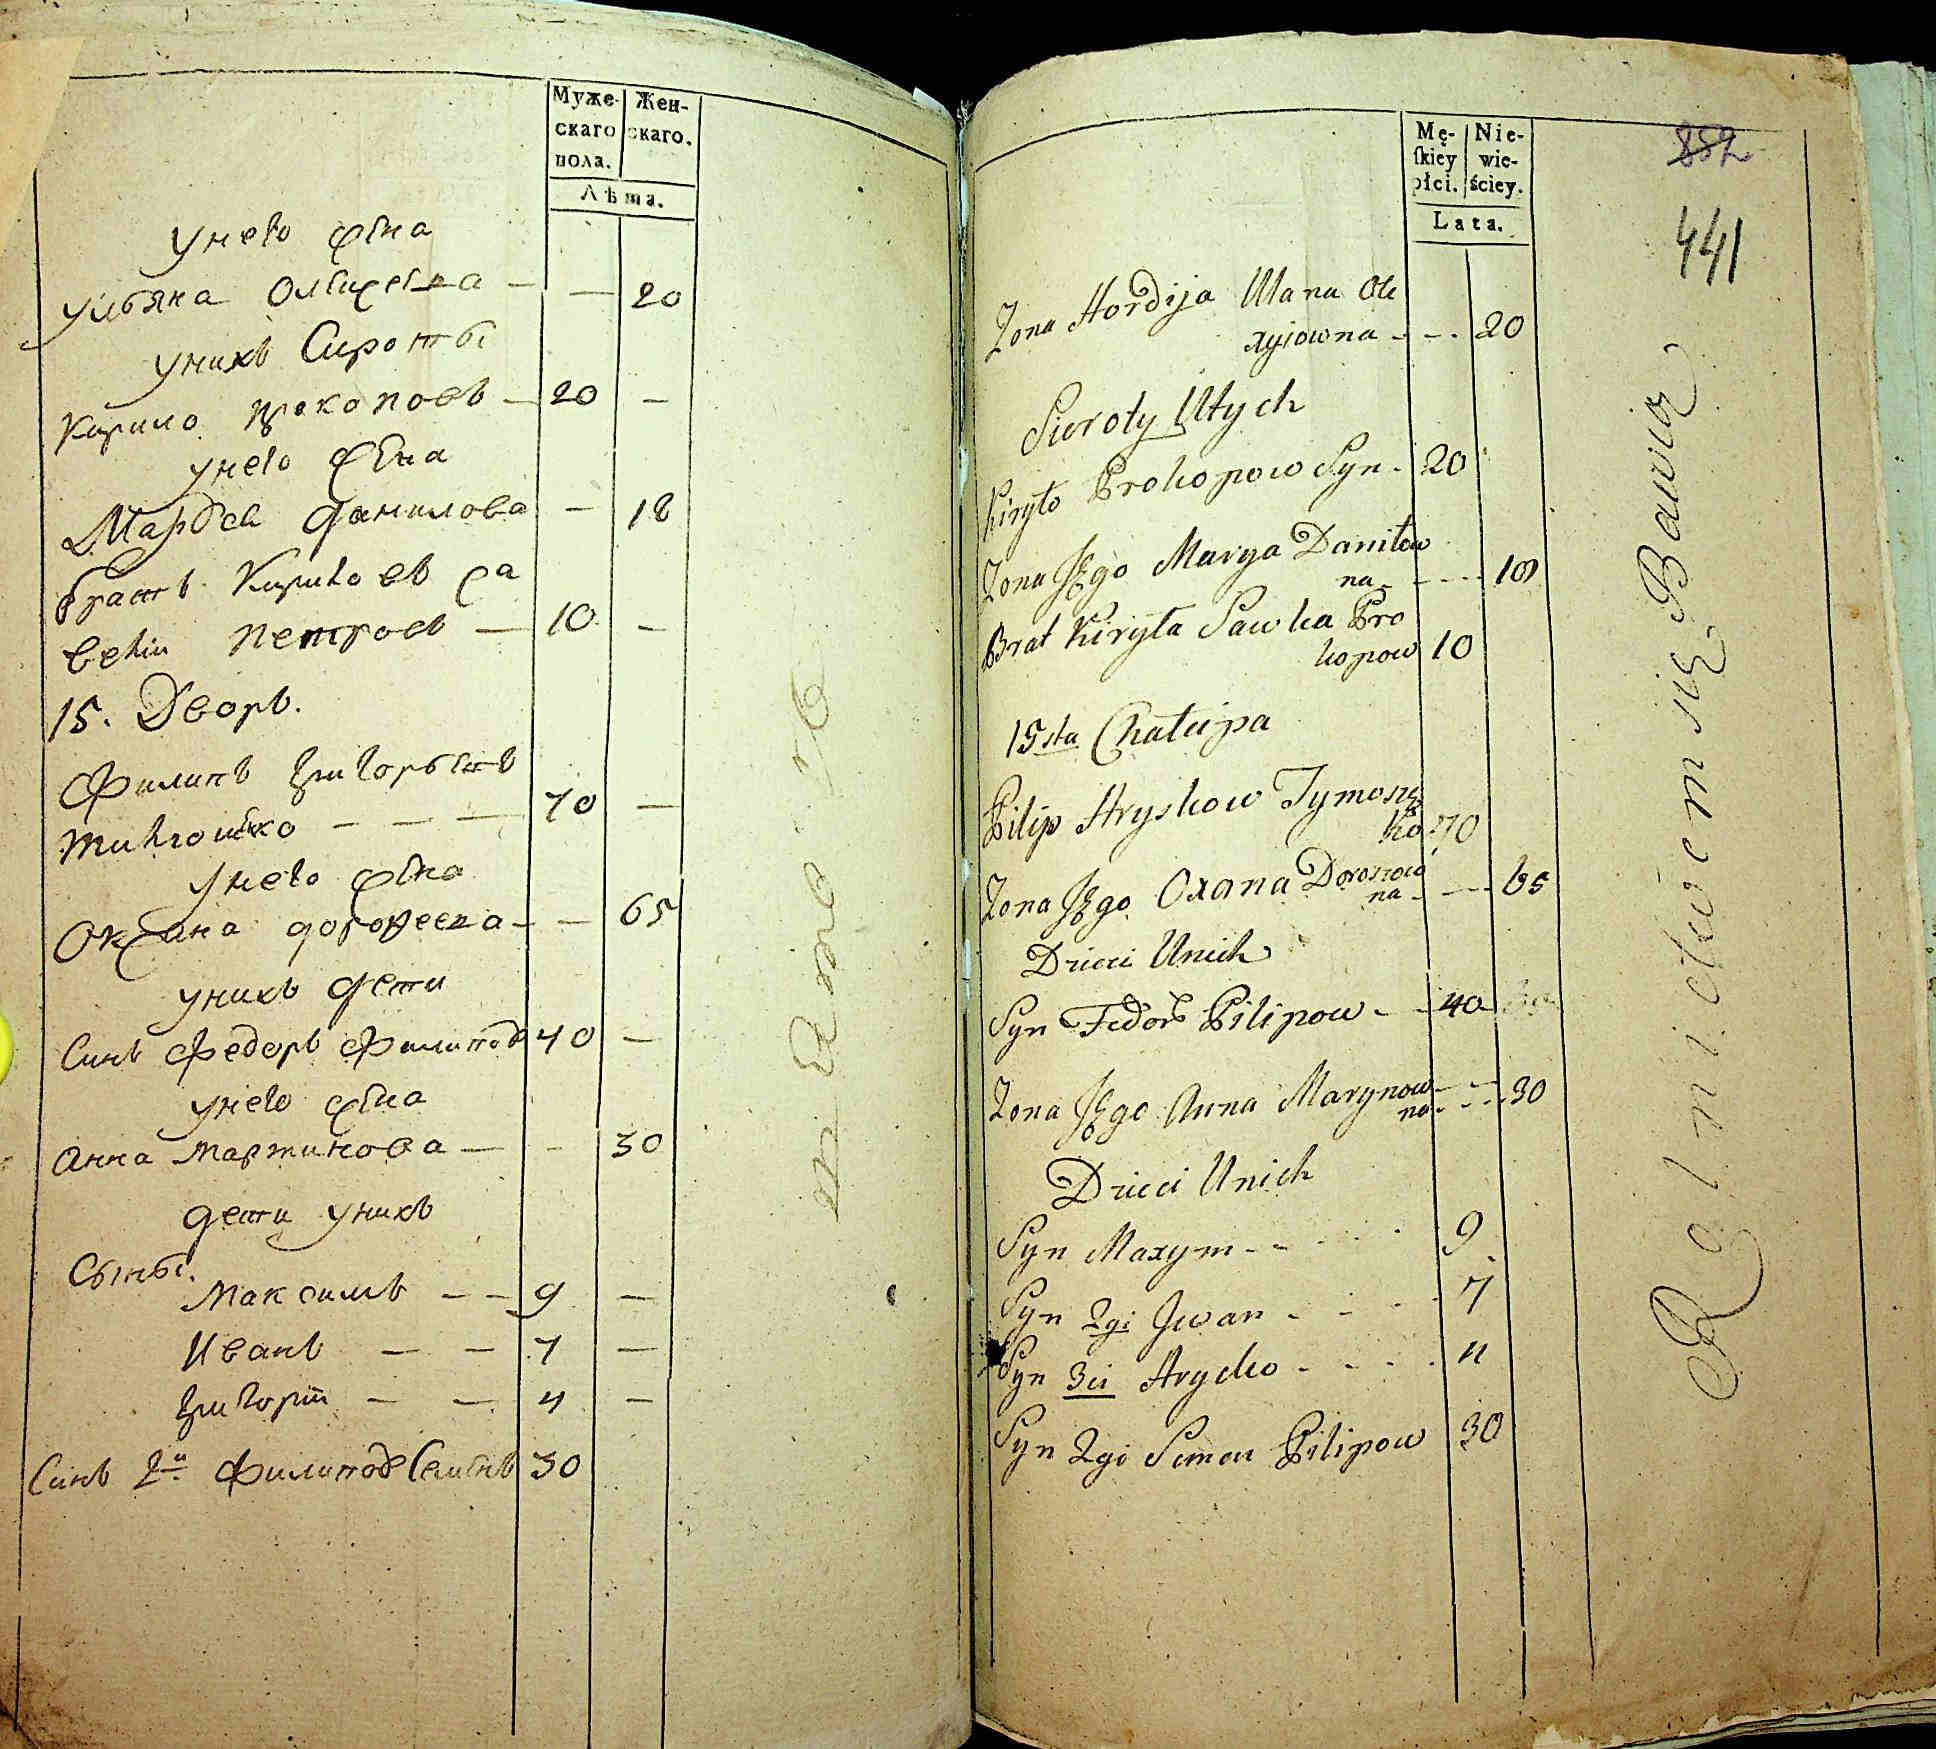 Муже-
скаго
пола.
Жен-
скаго.
Лѣта.
Унего жена
Ульяна Олексевна — — 20
Унихъ Сироты
Кирило Прокоповъ — 20 —
Унего жена
Марья Данилова — 18
братъ Кириловъ Са
векій Петровъ — 10 —
15. Дворъ.
Филипъ Григорьевъ
Тимошенко — — — 70 —
Унего жена
Оксана дорофеева — — 65
Унихъ дети
Синъ Федоръ Филиповъ 40 —
Унего жена
Анна Мартинова — - 30
дети Унихъ
Сыны.
Максимъ — — 9 —
Иванъ — — 7 —
Григорій — — 4 —
Синъ 2й Филиповъ Семенъ 30
Mę-
skiey
płci.
Nie-
wie-
ściey.
Lata.
852
441
Zona Hordija Ulana Ole
xyiowna - - - 20
Sieroty Utych
Kiryło Prokopow Syn - 20
Zona Jego Marya Daniłow
na - - - - 18
Brat Kiryła Sawka Pro
kopow 10
15sta Chałupa
Pilip Hryskow Tymosz
ko 70
Zona Jego Oxana Doroszow
na - — 65
Dzieci Unich
Syn Fedor Pilipow - - 40
Zona Jego Anna Marynow
na - - - 30
Dzieci Unich
Syn Maxym - - 9
Syn 2gi Jwan - - - 7
Syn 3ci Hryćko - - - - 4
Syn 2gi Semen Pilipow 30
Rolnictwem się Bawią